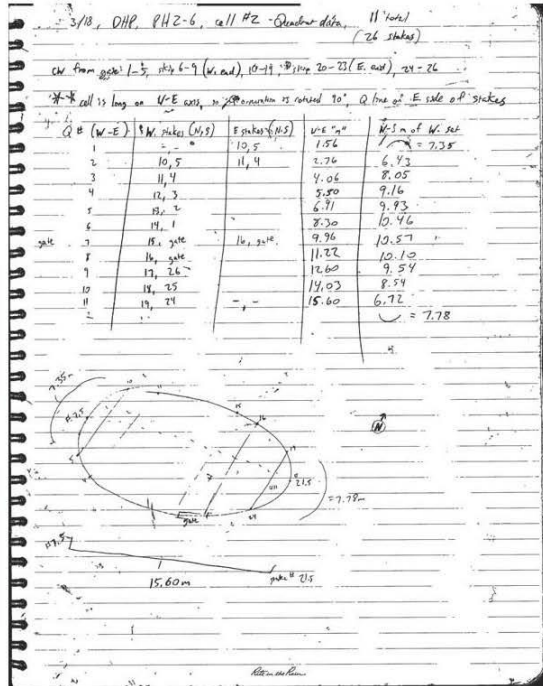 3/18, DHP, PH2-6, cell #2 - Quadrat data, 11 total
(26 stakes)
CW from gate: 1-5, skip 6-9 (W. end), 10-19, skip 20-23 (E. end), 24-26
cell is long on W-E axis, so is rotated 90°, Q line on E side of stakes
Q # (W-E) W. stakes (N,S) E stakes (N,S) W-E "m" N-S m of W. set
1 -, - 10, 5 1.56 = 7.35
2 10, 5 11, 4 2.76 6.43
3 11, 4 4.06 8.05
4 12, 3 5.50 9.16
5 13, 2 6.91 9.93
6 14, 1 8.30 10.46
gate 7 15, gate 16, gate 9.96 10.57
8 16, gate 11.22 10.10
9 17, 26 12.60 9.54
10 18, 25 14.03 8.54
11 19, 24 -, - 15.60 6.72
= 7.78
7.35m
N
16
5
19
21.5
= 7.78m
24
gate
15.60m
21.5
Rite in the Rain